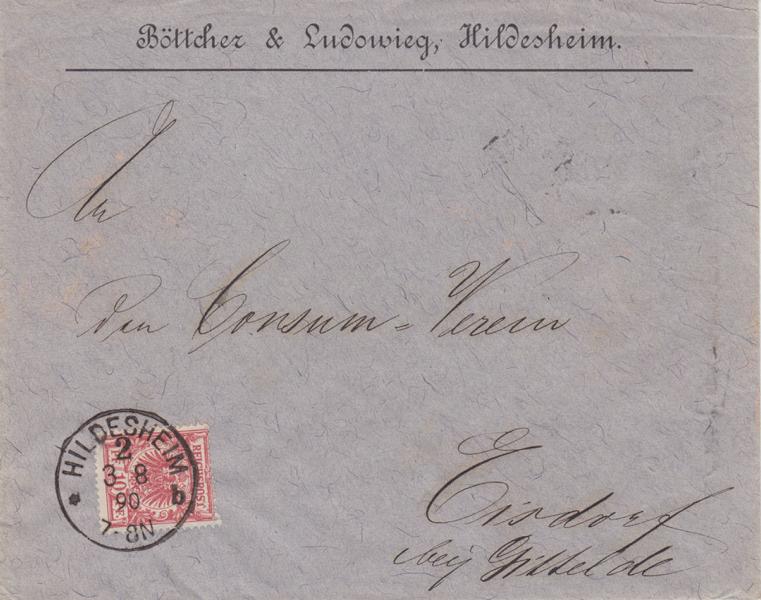 Böttcher & Ludowieg, Hildesheim.
An
den Consum=Verein
Eisdorf
bey Gittelde
HILDESHEIM
2
3 8
90
7-8N
* b
REICHSPOST
10